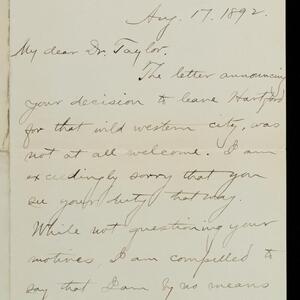 Aug. 17. 1892.
My dear Dr. Taylor.
The letter announcing
your decision to leave Hartford
for that wild western city, was
not at all welcome. I am
exceedingly sorry that you
see your duty that way.
While not questioning your
motives, I am compelled to
say that I am by no means